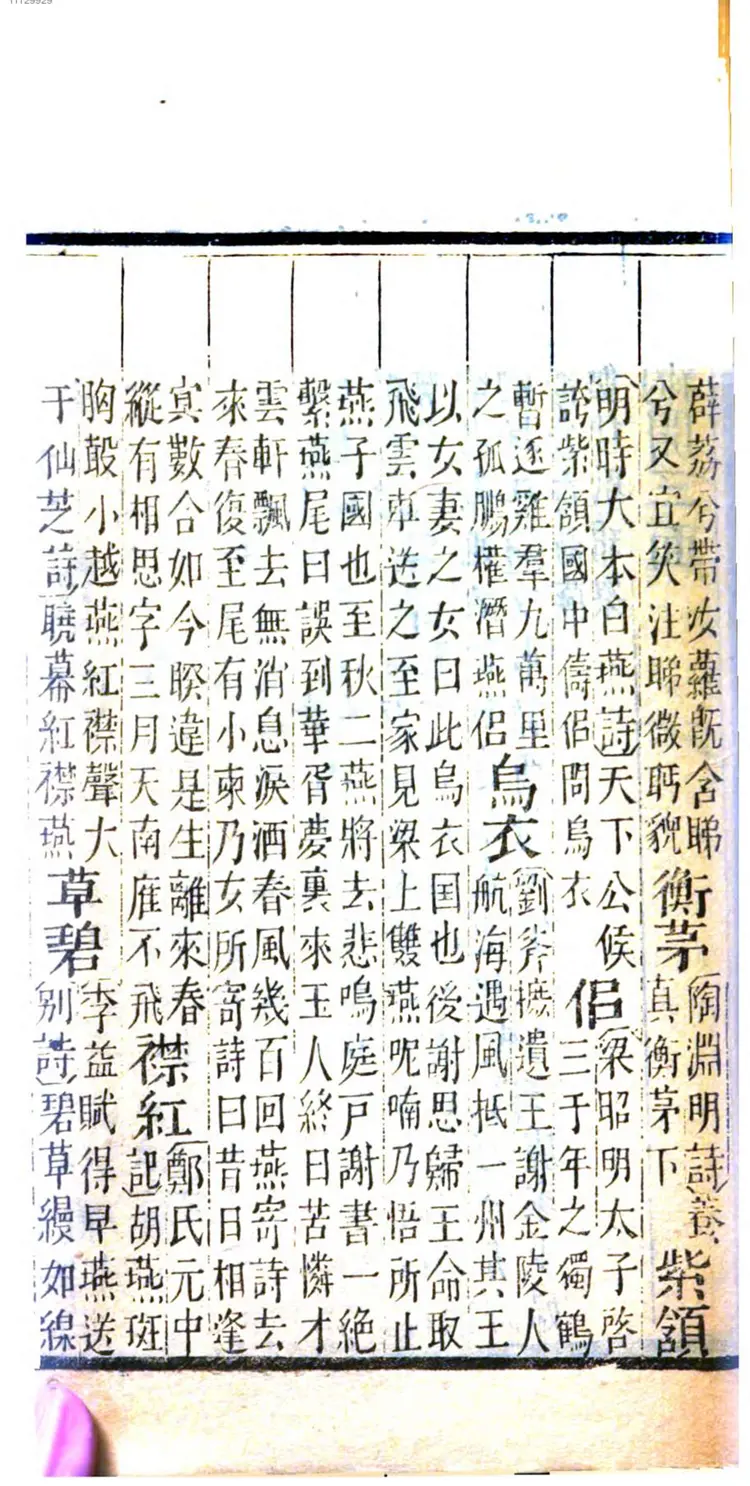 薜荔兮帶女蘿既含睇
兮又宜笑注睇微眄貌
衡茅
陶淵明詩養
真衡茅下
紫頷
明時大本白燕詩天下公候
誇紫頷國中儔侶問烏衣
侶
梁昭明太子啓
三千年之獨鶴
暫逐雞羣九萬里
之孤鵬權潛燕侶
烏衣
劉斧摭遺王謝金陵人
航海遇風抵一州其王
以女妻之女曰此烏衣国也後謝思歸王命取
飛雲車送之至家見梁上雙燕呢喃乃悟所止
燕子國也至秋二燕將去悲鳴庭戶謝書一絶
繫燕尾曰誤到華胥夢裏來玉人終日苦憐才
雲軒飄去無消息淚洒春風幾百回燕寄詩去
來春復至尾有小柬乃女所寄詩曰昔日相逢
冥數合如今暌違是生離來春
縱有相思字三月天南鴈不飛
襟紅
鄭氏元中
記胡燕斑
胸鷇小越燕紅襟聲大
于仙芝詩曉幕紅襟燕
草碧
李益賦得早燕送
別詩碧草縵如線